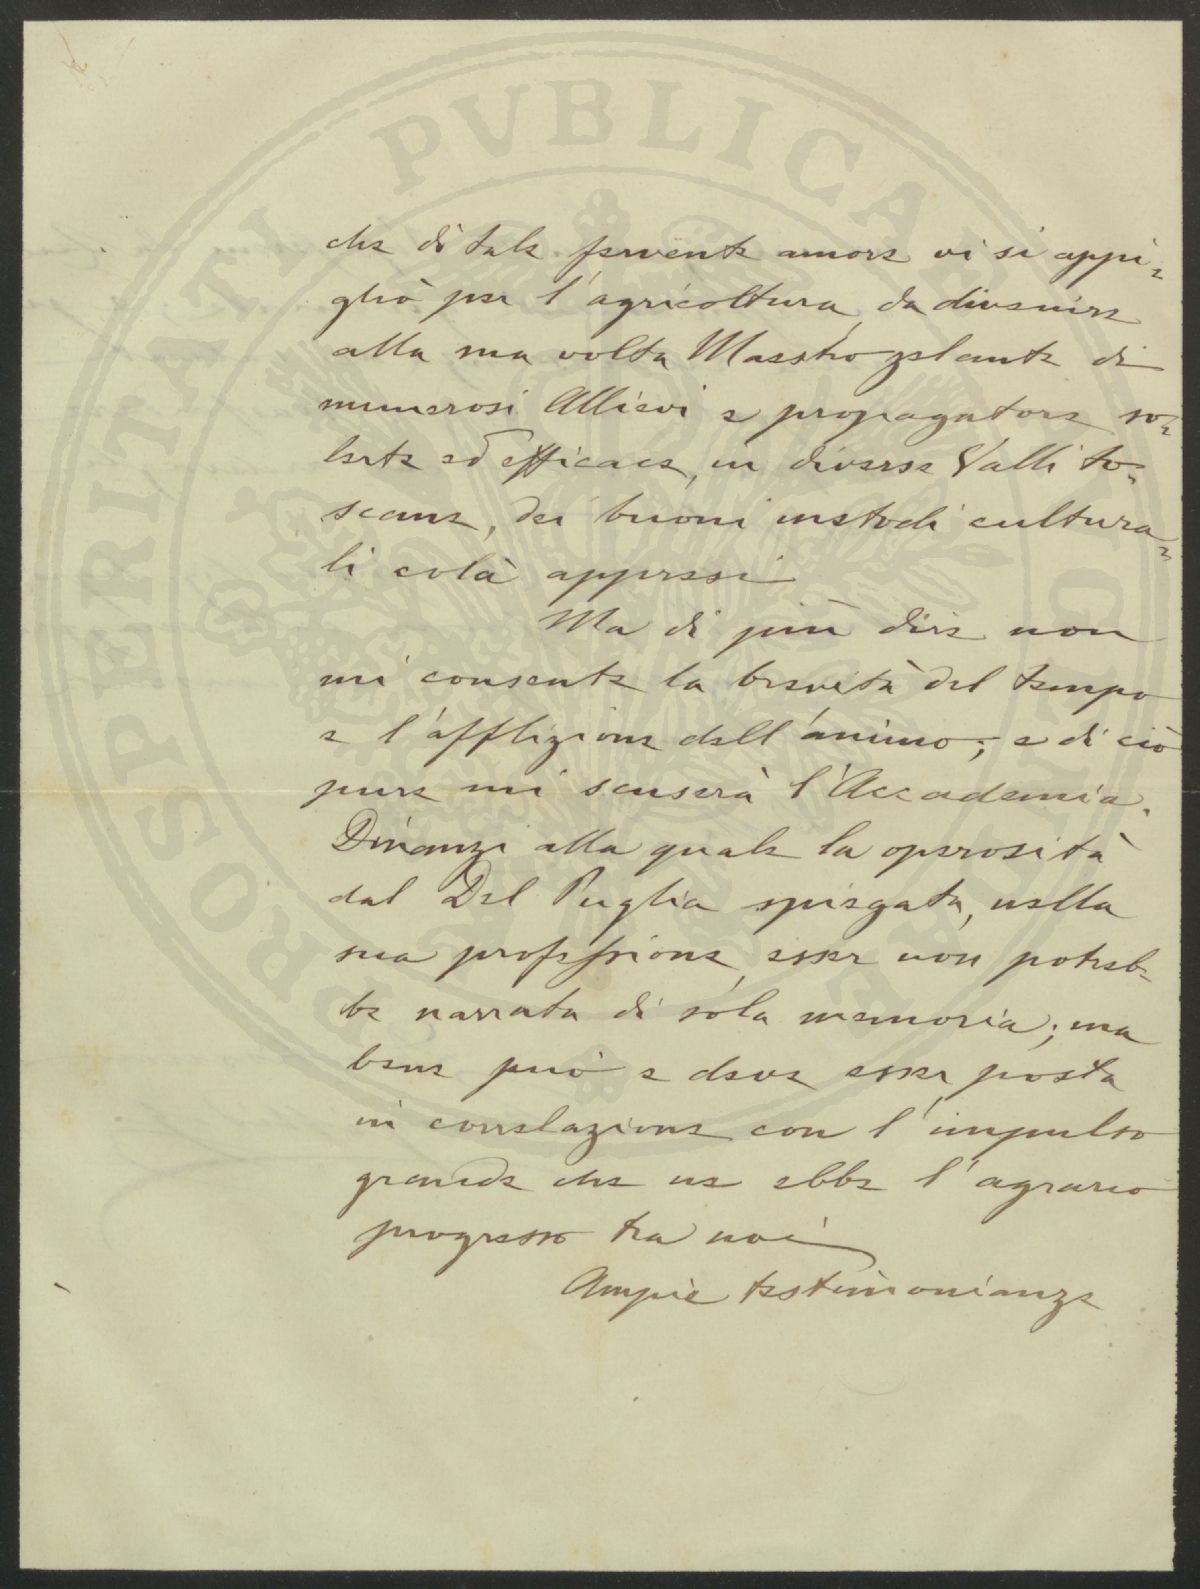 PROSPERITATI PVBLICAE AVGENDAE
che di tale fervente amore vi si appi=
gliò per l'agricoltura, da divenire
alla sua volta Maestro zelante di
numerosi Allievi e propagatore so=
lerte ed efficace, in diverse Valli to=
scane, dei buoni metodi cultura=
li colà appressi
Ma di più dire non
mi consente la brevità del tempo
e l'afflizione dell'animo; e di ciò
pure mi scuserà l'Accademia.
Dinanzi alla quale la operosità
dal Del Puglia spiegata, nella
sua professione, esser non potreb=
be narrata di sola memoria; ma
bene può e deve esser posta
in correlazione con l'impulso
grande che ne ebbe l'agrario
progresso tra noi
Ampie testimonianze